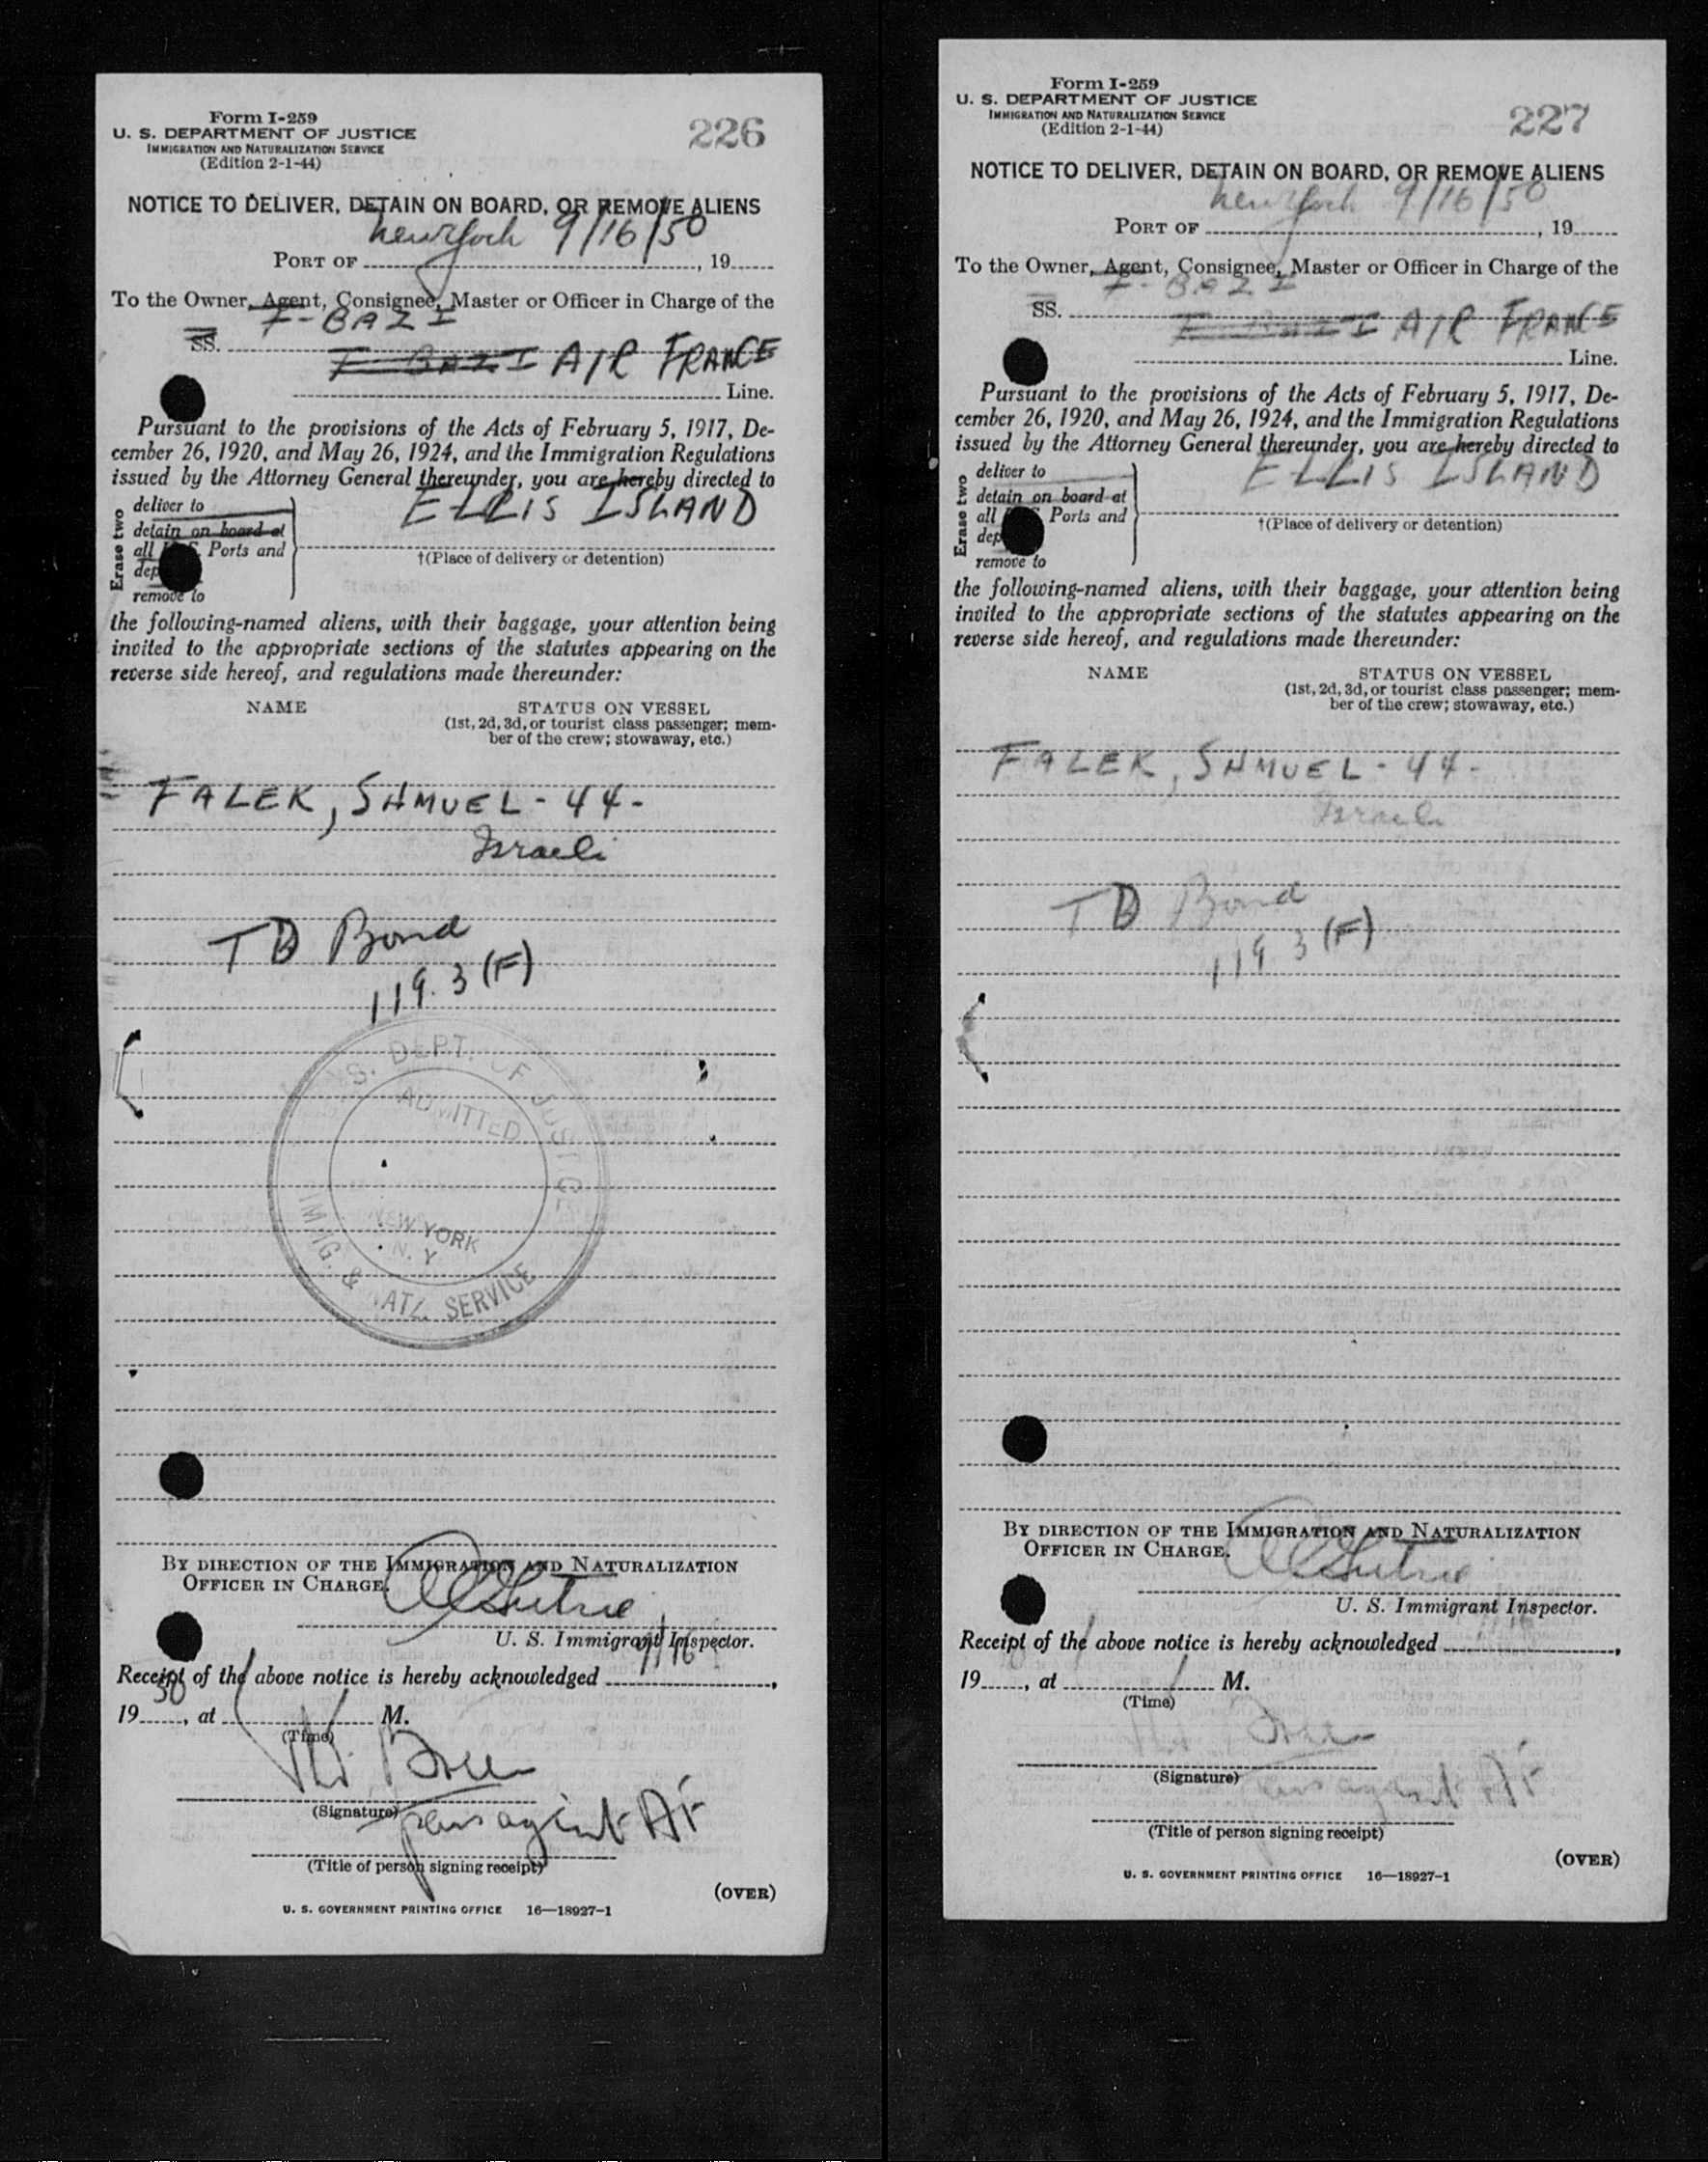 Form I-259
U. S. DEPARTMENT OF JUSTICE
IMMIGRATION AND NATURALIZATION SERVICE
(Edition 2-1-44)
226
NOTICE TO DELIVER, DETAIN ON BOARD, OR REMOVE ALIENS
New York 9/16/50
PORT OF , 19
To the Owner, Agent, Consignee, Master or Officer in Charge of the
F-BAZI
SS.
F BAZI AIR FRANCE
Line.
Pursuant to the provisions of the Acts of February 5, 1917, De-
cember 26, 1920, and May 26, 1924, and the Immigration Regulations
issued by the Attorney General thereunder, you are hereby directed to
Erase two
deliver to
ELLIS ISLAND
detain on board at
all Ports and
dep
remove to
†(Place of delivery or detention)
the following-named aliens, with their baggage, your attention being
invited to the appropriate sections of the statutes appearing on the
reverse side hereof, and regulations made thereunder:
NAME STATUS ON VESSEL
(1st, 2d, 3d, or tourist class passenger; mem-
ber of the crew; stowaway, etc.)
FALEK, SHMUEL - 44 -
Israeli
TD Bond
119.3 (F)
S. DEPT. OF JUSTICE
ADMITTED
NEW YORK
N. Y.
IMMIG. & NATZ. SERVICE
BY DIRECTION OF THE IMMIGRATION AND NATURALIZATION
OFFICER IN CHARGE.
U. S. Immigrant Inspector.
9/16
Receipt of the above notice is hereby acknowledged ,
50
19 , at M.
(Time)
(Signature)
pass agent AF
(Title of person signing receipt)
(OVER)
U. S. GOVERNMENT PRINTING OFFICE 16—18927-1
Form I-259
U. S. DEPARTMENT OF JUSTICE
IMMIGRATION AND NATURALIZATION SERVICE
(Edition 2-1-44)
227
NOTICE TO DELIVER, DETAIN ON BOARD, OR REMOVE ALIENS
New York 9/16/50
PORT OF , 19
To the Owner, Agent, Consignee, Master or Officer in Charge of the
F-BAZI
SS.
F BAZI AIR FRANCE
Line.
Pursuant to the provisions of the Acts of February 5, 1917, De-
cember 26, 1920, and May 26, 1924, and the Immigration Regulations
issued by the Attorney General thereunder, you are hereby directed to
Erase two
deliver to
ELLIS ISLAND
detain on board at
all Ports and
dep
remove to
†(Place of delivery or detention)
the following-named aliens, with their baggage, your attention being
invited to the appropriate sections of the statutes appearing on the
reverse side hereof, and regulations made thereunder:
NAME STATUS ON VESSEL
(1st, 2d, 3d, or tourist class passenger; mem-
ber of the crew; stowaway, etc.)
FALEK, SHMUEL - 44 -
Israeli
TD Bond
119.3 (F)
BY DIRECTION OF THE IMMIGRATION AND NATURALIZATION
OFFICER IN CHARGE.
U. S. Immigrant Inspector.
Receipt of the above notice is hereby acknowledged ,
19 , at M.
(Time)
(Signature)
pass agent AF
(Title of person signing receipt)
(OVER)
U. S. GOVERNMENT PRINTING OFFICE 16—18927-1